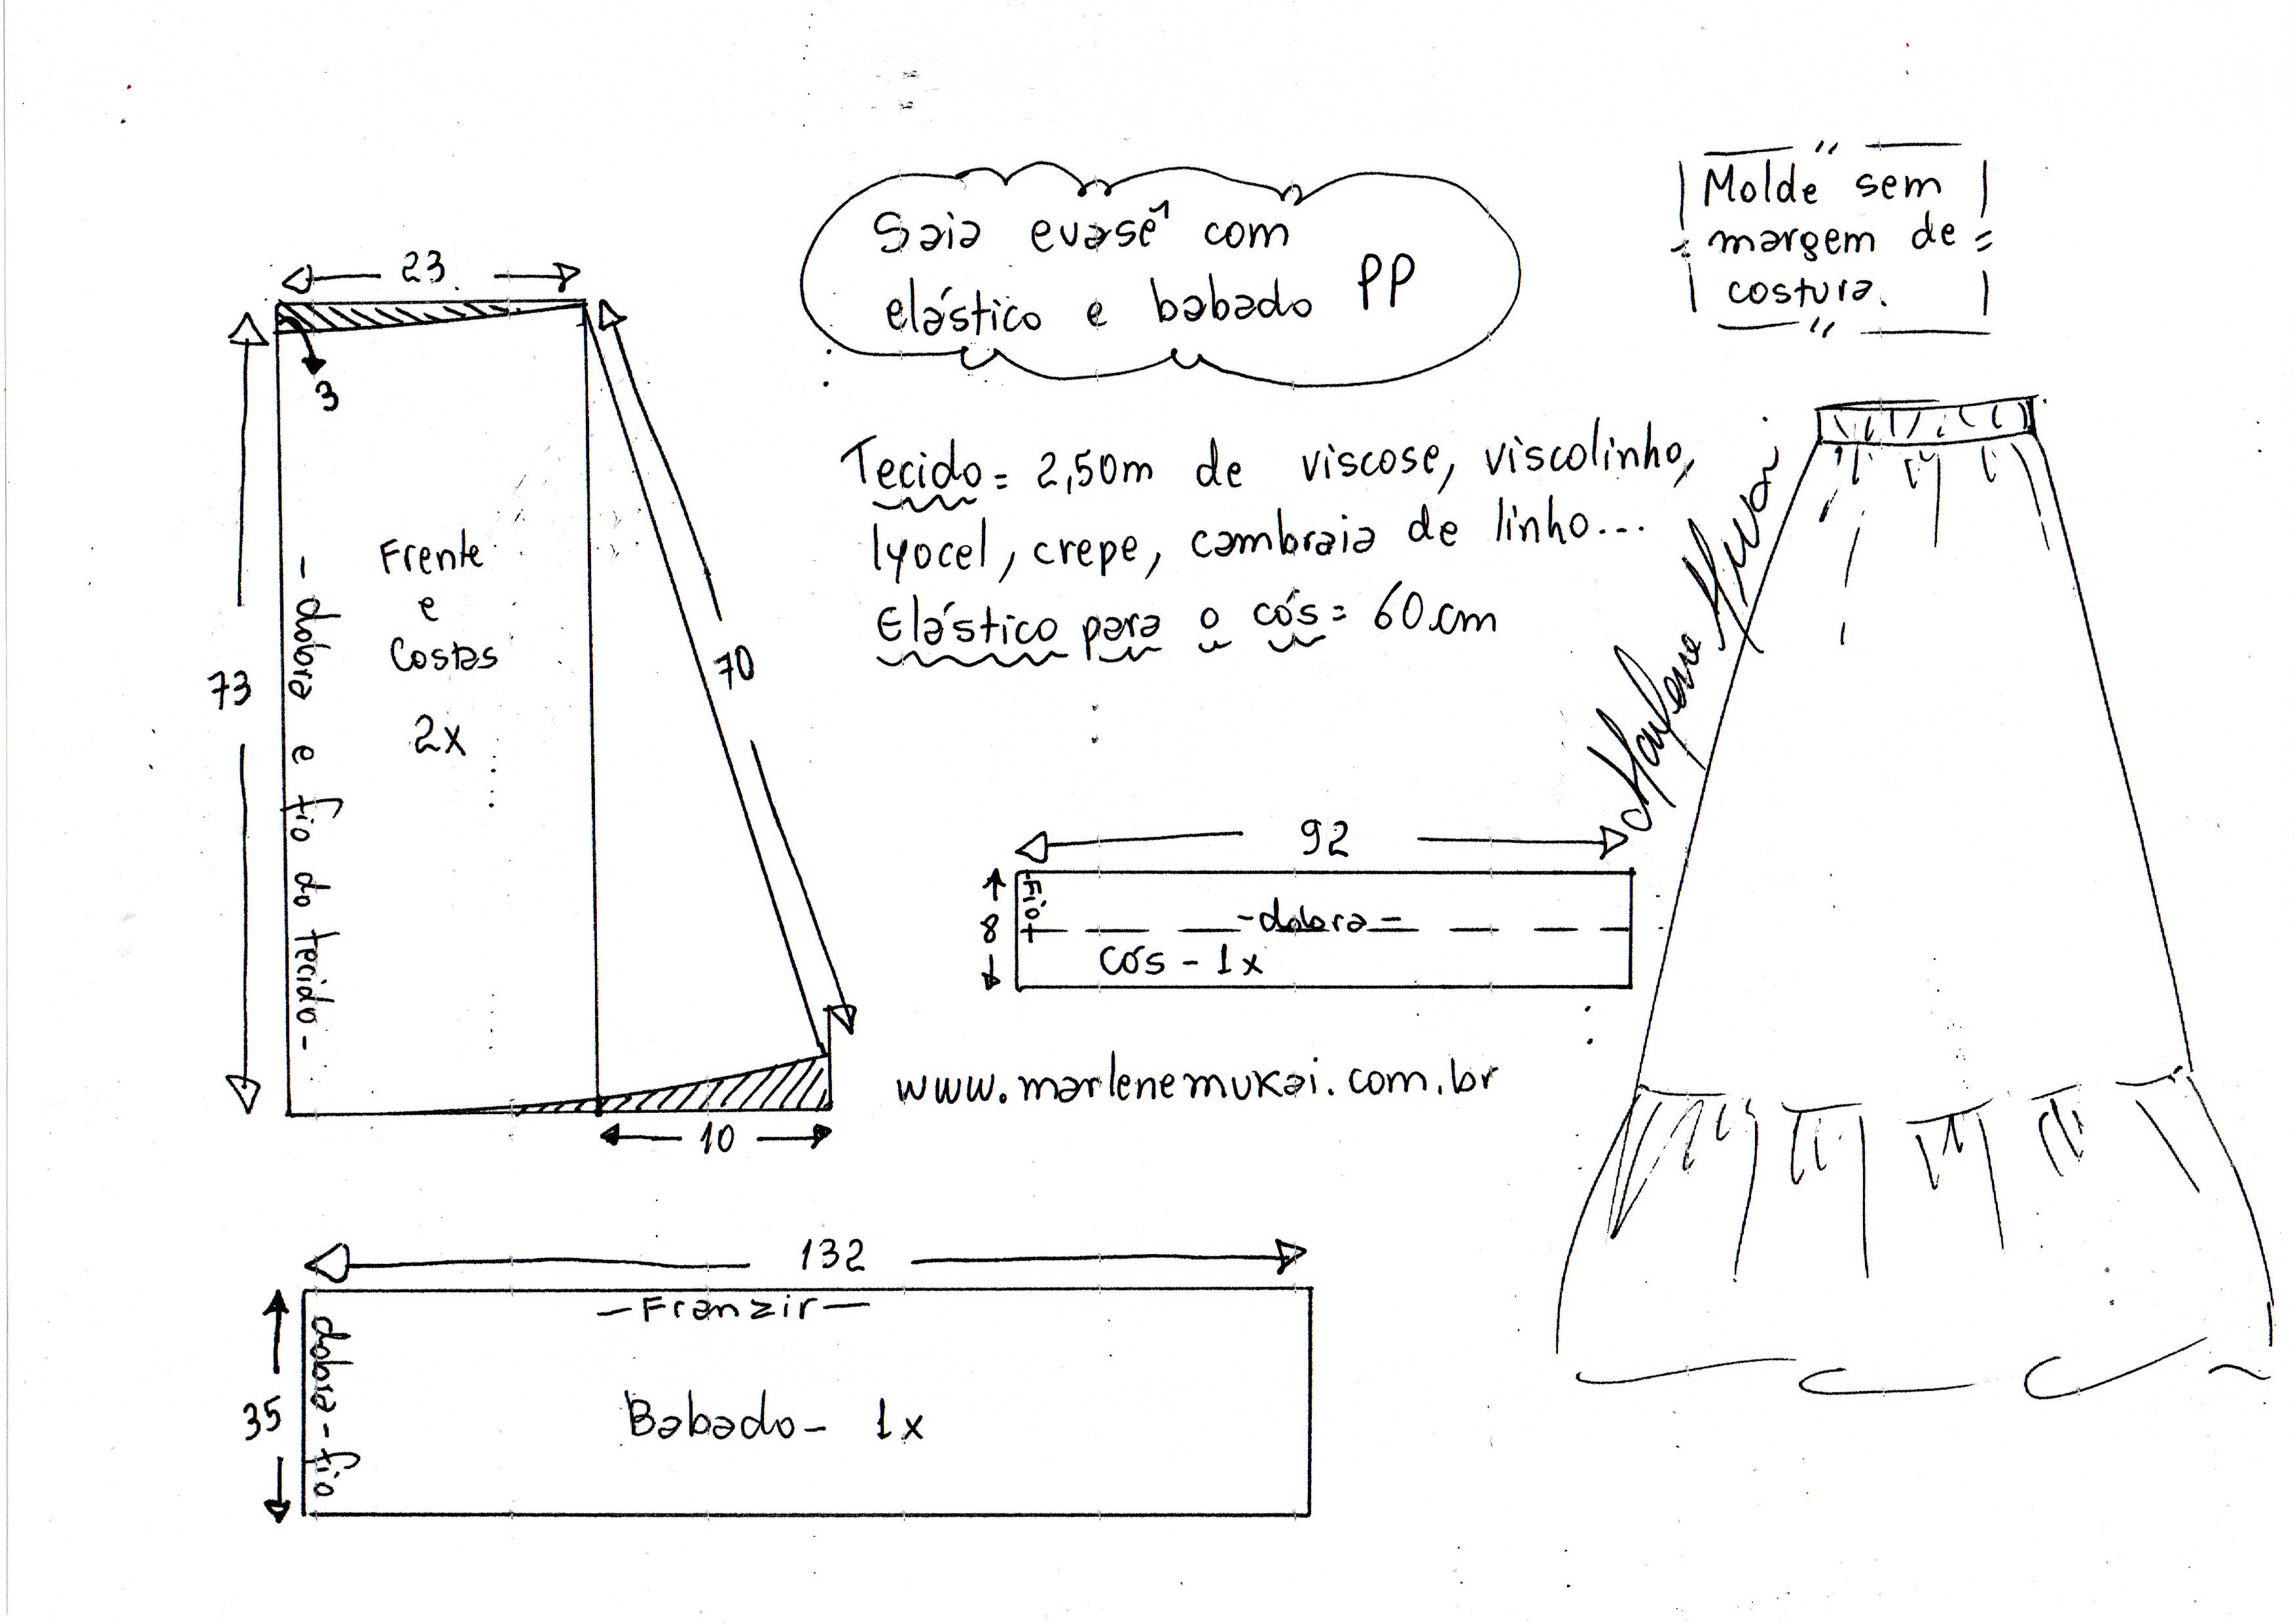 Saia evasê com
elástico e babado PP
Molde sem
margem de
costura.
23
3
73
- dobra e fio do tecido -
Frente
e
Costas
2x
70
10
Tecido = 2,50m de viscose, viscolinho,
lyocel, crepe, cambraia de linho...
Elástico para o cós = 60 cm
Marlene Mukai
92
8
Fio
- dobra -
Cós - 1x
www.marlenemukai.com.br
132
- Franzir -
35
dobra - fio
Babado - 1x